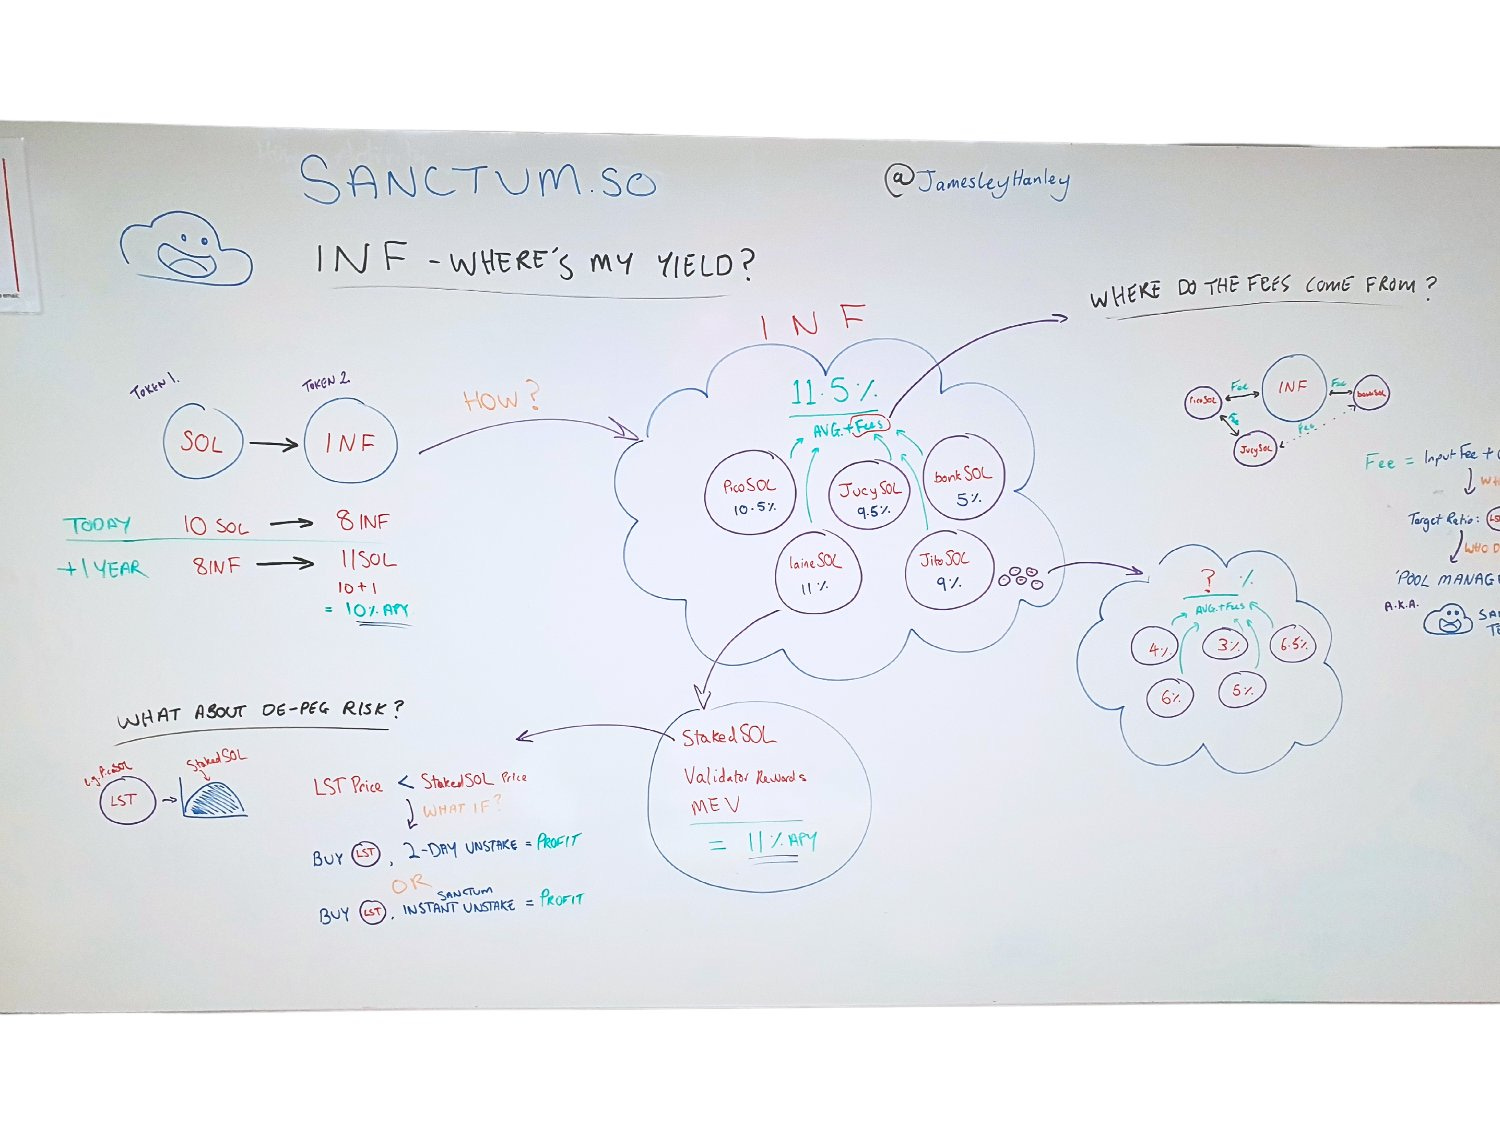 SANCTUM.SO
@JamesleyHanley
INF - WHERE'S MY YIELD?
TOKEN 1.
TOKEN 2.
SOL → INF
TODAY 10 SOL → 8 INF
+1 YEAR 8INF → 11SOL
10 + 1
= 10% APY
HOW?
INF
11.5%
AVG. + Fees
PicoSOL
10.5%
JucySOL
9.5%
bonkSOL
5%
laineSOL
11%
JitoSOL
9%
WHERE DO THE FEES COME FROM?
INF
PicoSOL
Fee
Fee
bonkSOL
Fee
JucySOL
Fee = Input Fee +
Target Ratio:
WHO D
'POOL MANAG
A.K.A.
? %
AVG. + Fees
4%
3%
6.5%
6%
5%
WHAT ABOUT DE-PEG RISK?
e.g. PicoSOL
StakedSOL
LST
LST Price < StakedSOL Price
WHAT IF?
BUY LST, 2-DAY UNSTAKE = PROFIT
OR
SANCTUM
BUY LST, INSTANT UNSTAKE = PROFIT
StakedSOL
Validator Rewards
MEV
= 11% APY